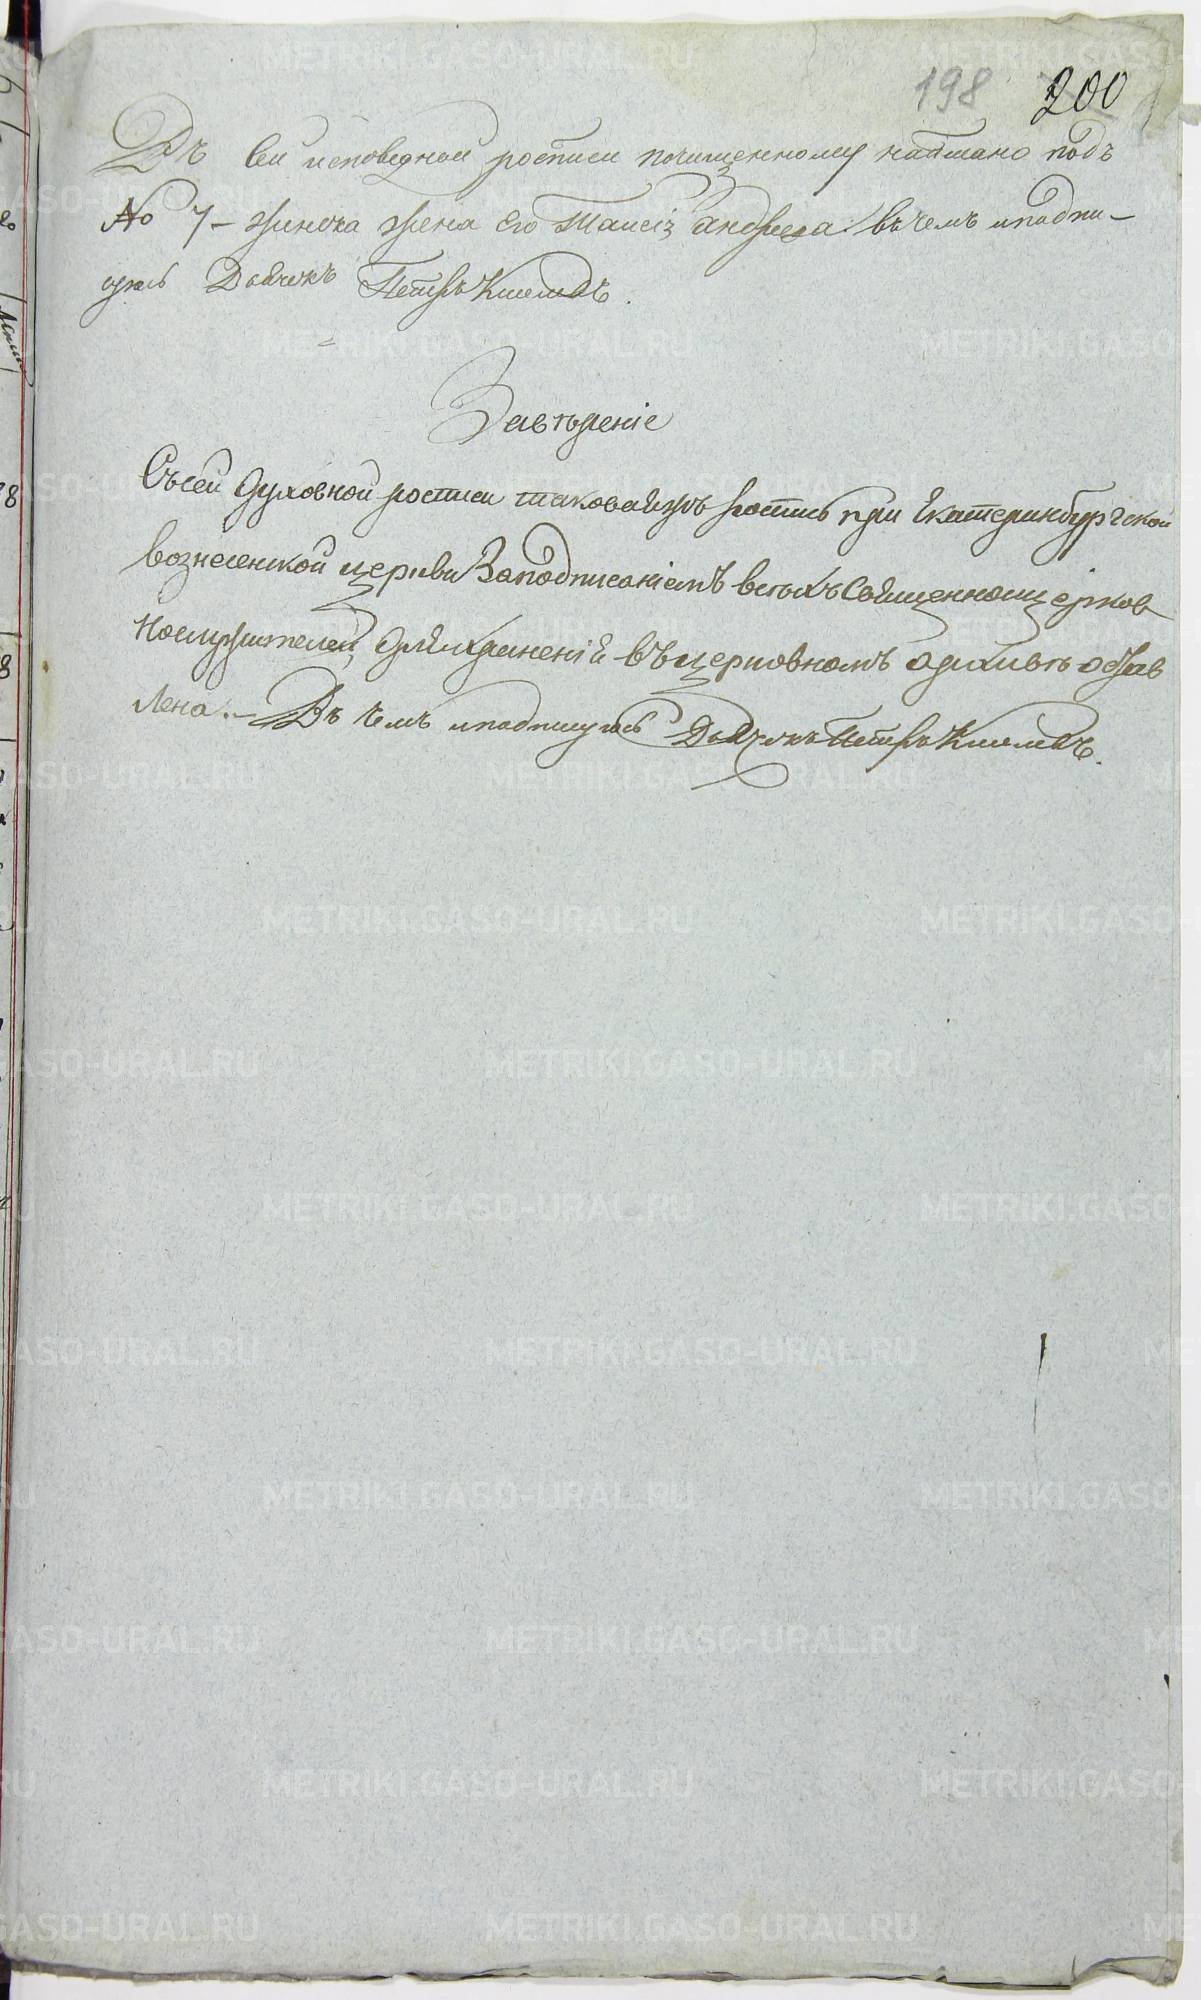 198 200
Въ сей исповедной росписи почищенному написано подъ
№ 7 – жена его андреева въ чемъ и подпи–
суюсь Дьячекъ Петръ
Заверение
Съ сей духовной росписи таковаяжъ роспись при Екатеринбургской
вознесенской церкви За подписаниемъ всехъ священноцерков
нослужителей, для хранения въ церковномъ архиве остав
лена. – Въ чемъ и подписуюсь Дьячекъ Петръ